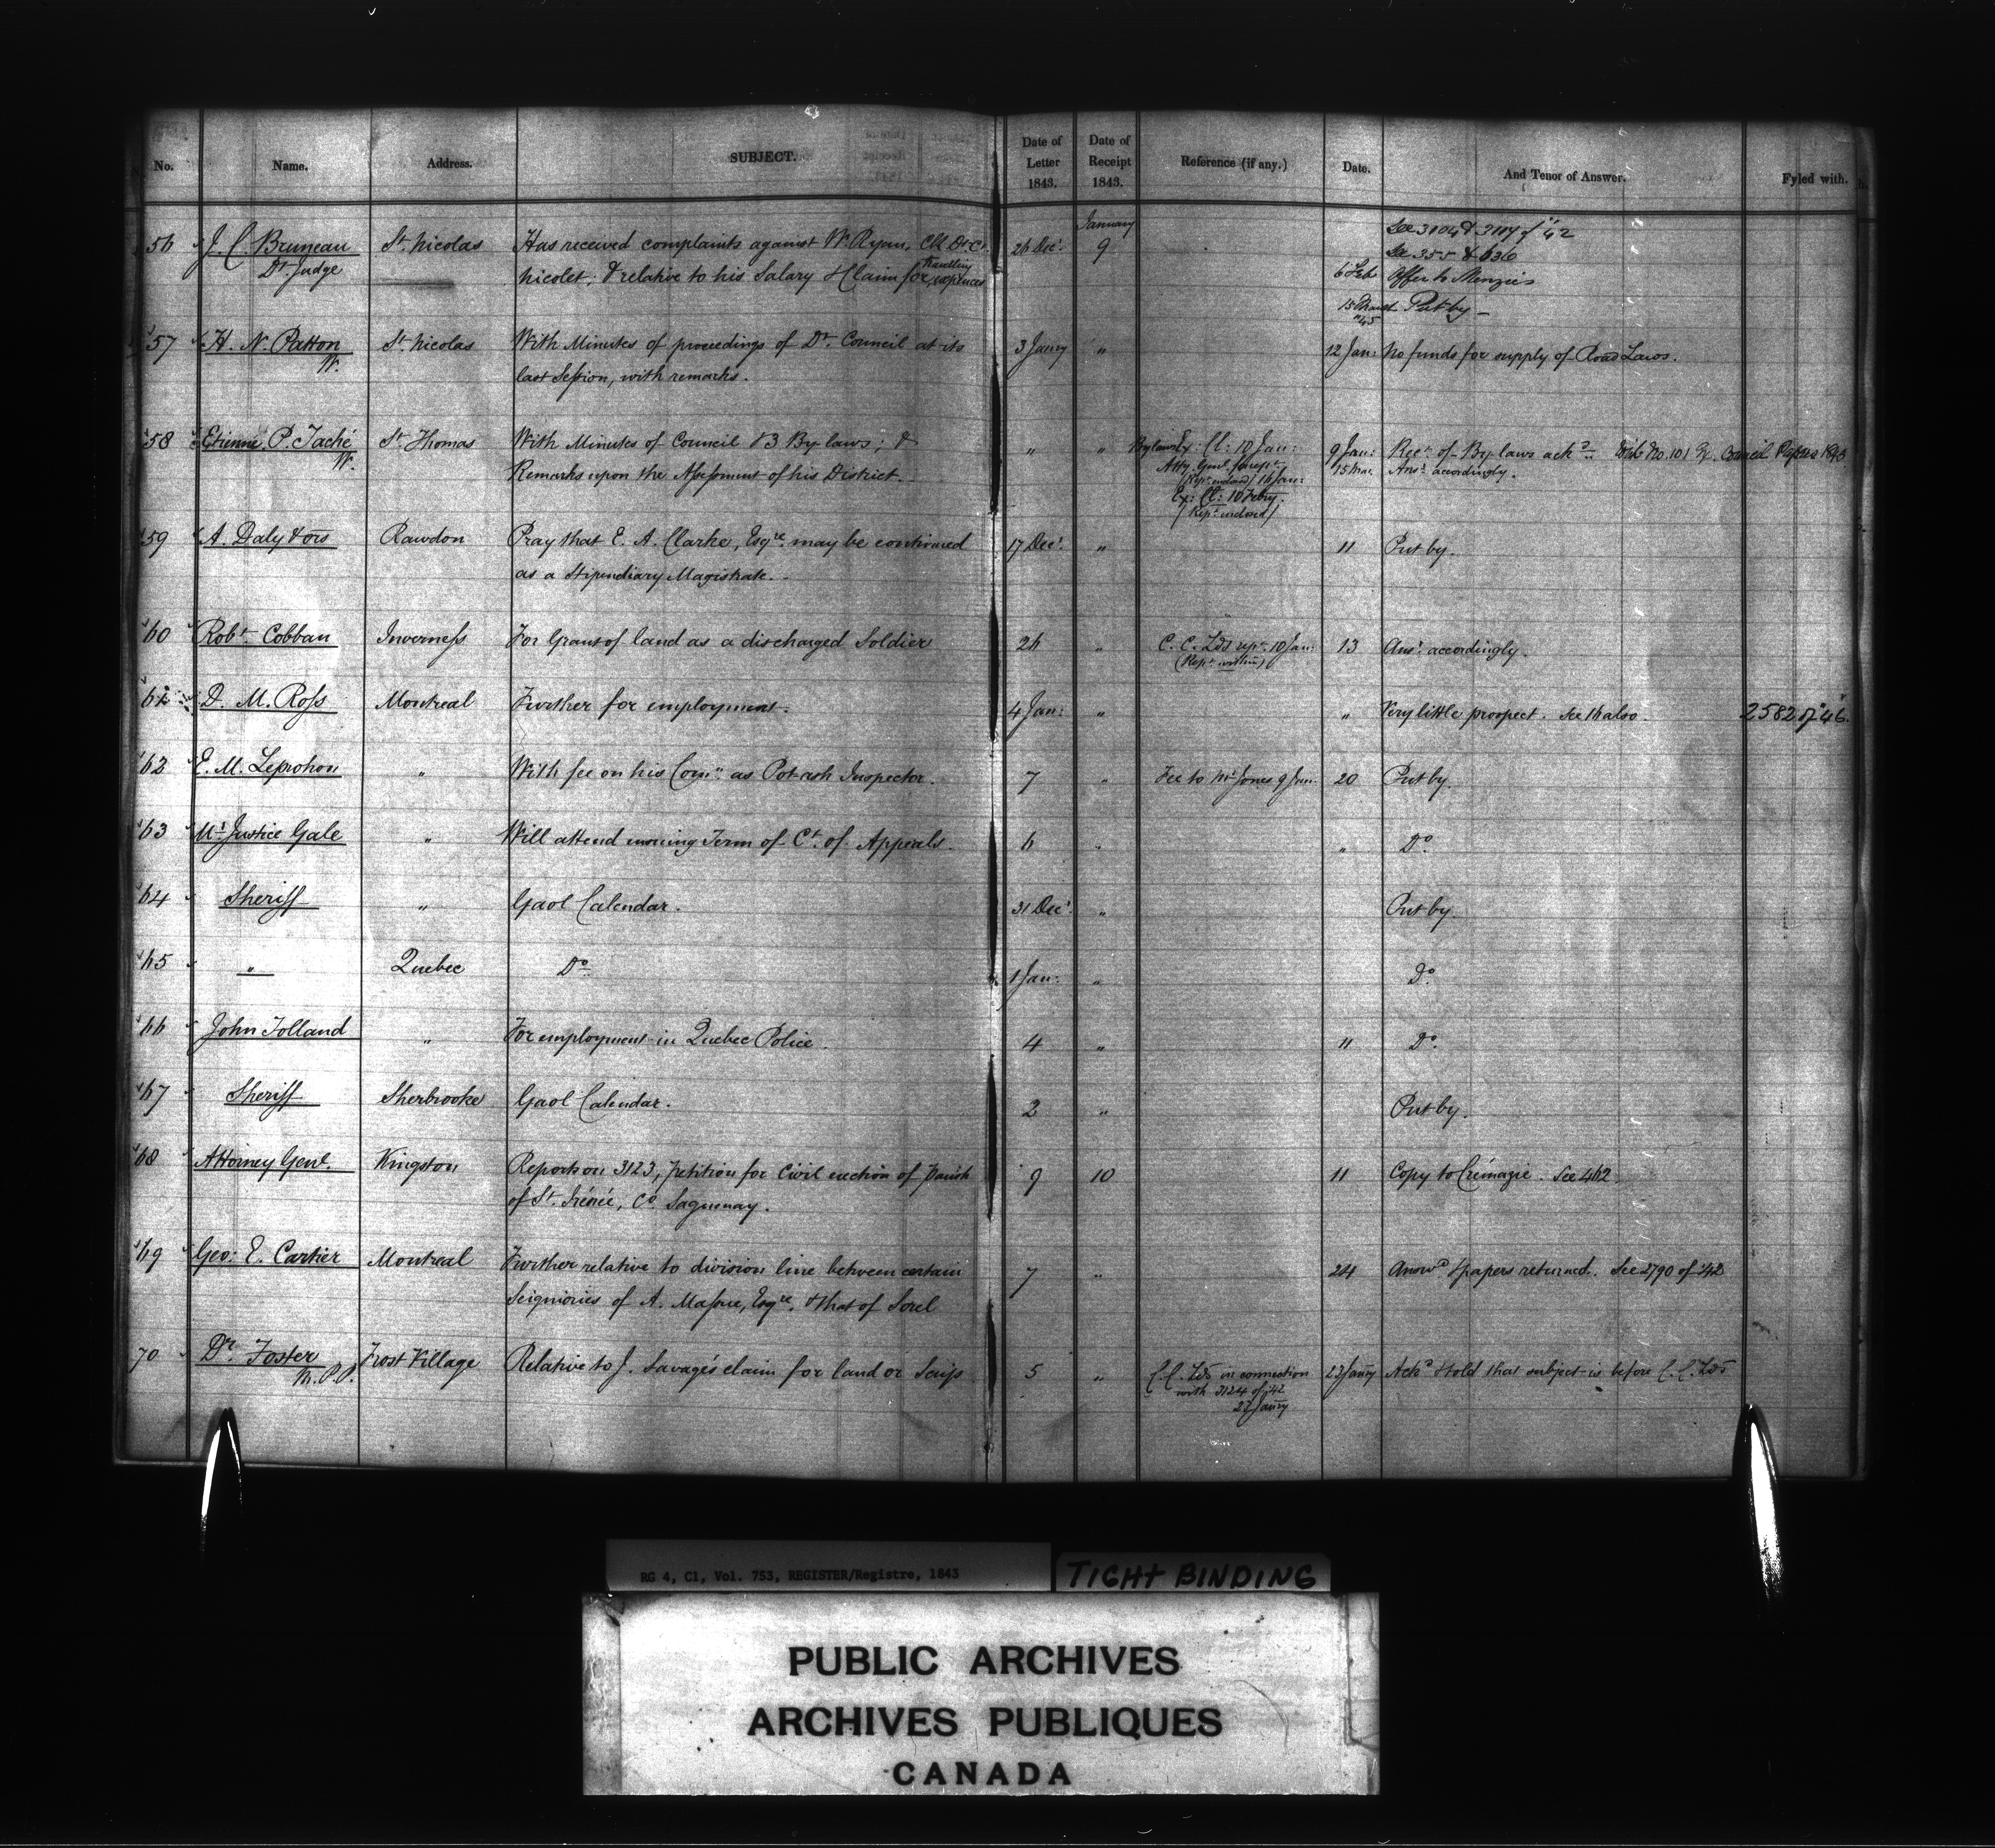 No. Name. Address. SUBJECT. Date of Letter 1843. Date of Receipt 1843. Reference (if any.) Date. And Tenor of Answer. Fyled with.
January
See 3104 & 3117 of "42
56 J. C. Bruneau St. Nicolas Has received complaints against Wm Ryan, Clk Dt. Ct. 26 Decr. 9 See 355 & 636
Dt. Judge Nicolet; & relative to his Salary & Claim for travelling expences 6 Feb Offer to Menzies
15 March "45 Put by
57 H. N. Patton St. Nicolas With Minutes of proceedings of Dt. Council at its 3 Jany " 12 Jan: No funds for supply of Road Laws.
W. last Session, with remarks.
58 Etienne P. Taché St. Thomas With Minutes of Council & 3 By-laws; & " " By laws Ex: Cl: 10 Jan: 9 Jan: Rect. of By-laws ackd. With No. 101 Ex. Council Papers 1843
W. Remarks upon the Assessment of his District. Atty. Genl. for rept. 15 Mar. Ansd. accordingly.
/Rept. enclosed/ 16 Jan:
Ex: Cl: 10 Feby.
/Rept. enclosed/
59 A. Daly & ors Rawdon Pray that E. A. Clarke, Esqre. may be continued 17 Decr. " 11 Put by.
as a Stipendiary Magistrate.
60 Robt. Cobban Inverness For Grant of land as a discharged Soldier 26 " C. C. Lds rept. 10 Jan: 13 Ansd. accordingly.
(Rept. within)
61 D. M. Ross Montreal Further for employment. 4 Jan: " " Very little prospect. See 16 also. 2582 of "46.
62 E. M. Leprohon " With fee on his Comn. as Pot-ash Inspector. 7 " Fee to Mr Jones 9 Jan. 20 Put by.
63 Mr. Justice Gale " Will attend ensuing Term of Ct. of Appeals. 6 " " Do.
64 Sheriff " Gaol Calendar. 31 Decr. " Put by.
65 " Quebec Do. 1 Jan: " Do.
66 John Tolland " For employment in Quebec Police. 4 " 11 Do.
67 Sheriff Sherbrooke Gaol Calendar. 2 " Put by.
68 Attorney Genl. Kingston Reports on 3123, petition for Civil erection of Parish 9 10 11 Copy to Crémazie. See 462.
of St. Irénée, Co. Saguenay.
69 Geo: E. Cartier Montreal Further relative to division line between certain 7 " 24 Answd. & papers returned. See 2790 of "42
Seigniories of A. Massue, Esqre. & that of Sorel
70 Dr. Foster Frost Village Relative to J. Savage's claim for land or Scrip 5 " C. C. Lds in connection 23 Jany Ackd. & told that subject is before C. C. Lds
M.P.P. with 3124 of '42
23 Jany
RG 4, C1, Vol. 753, REGISTER/Registre, 1843
TIGHT BINDING
PUBLIC ARCHIVES
ARCHIVES PUBLIQUES
CANADA